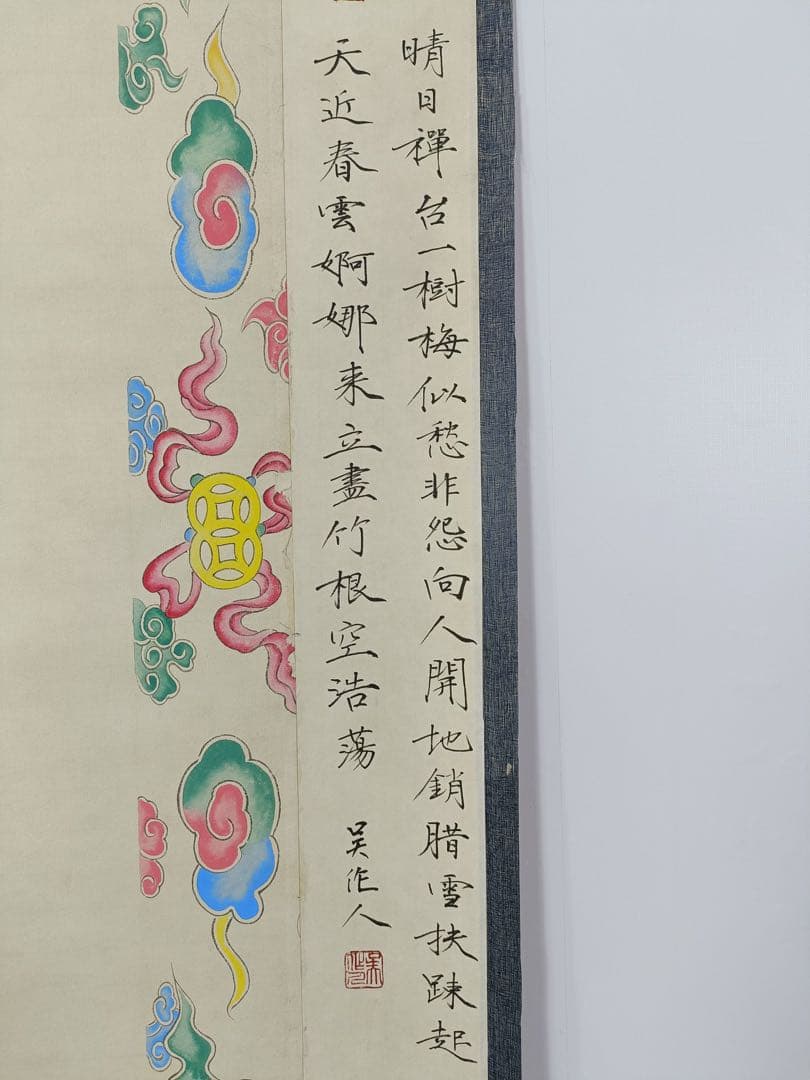 晴日禪台一樹梅似愁非怨向人開地銷腊雪扶踈起
天近春雲婀娜来立盡竹根空浩蕩
吴作人